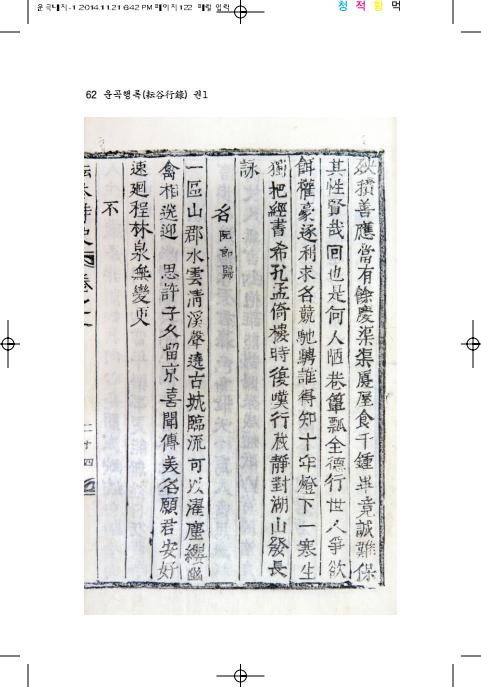 운곡내지-1 2014.11.21 6:42 PM 페이지122 매킬 입력
청 적 황 먹
62 운곡행록(耘谷行錄) 권1
殃積善應當有餘慶渠渠廈屋食千鍾畢竟誠難保
其性賢哉回也是何人陋巷簞瓢全德行世人爭欲
餌權豪逐利求名競馳騁誰得知十年燈下一寒生
獨把經書希孔孟倚樓時復嘆行藏靜對湖山發長
詠
名阮郞歸
一區山郡水雲淸溪聲遶古城臨流可以濯塵纓幽
禽相送迎 思許子久留京喜聞傳美名願君安好
速廻程林泉無變更
不
二十四